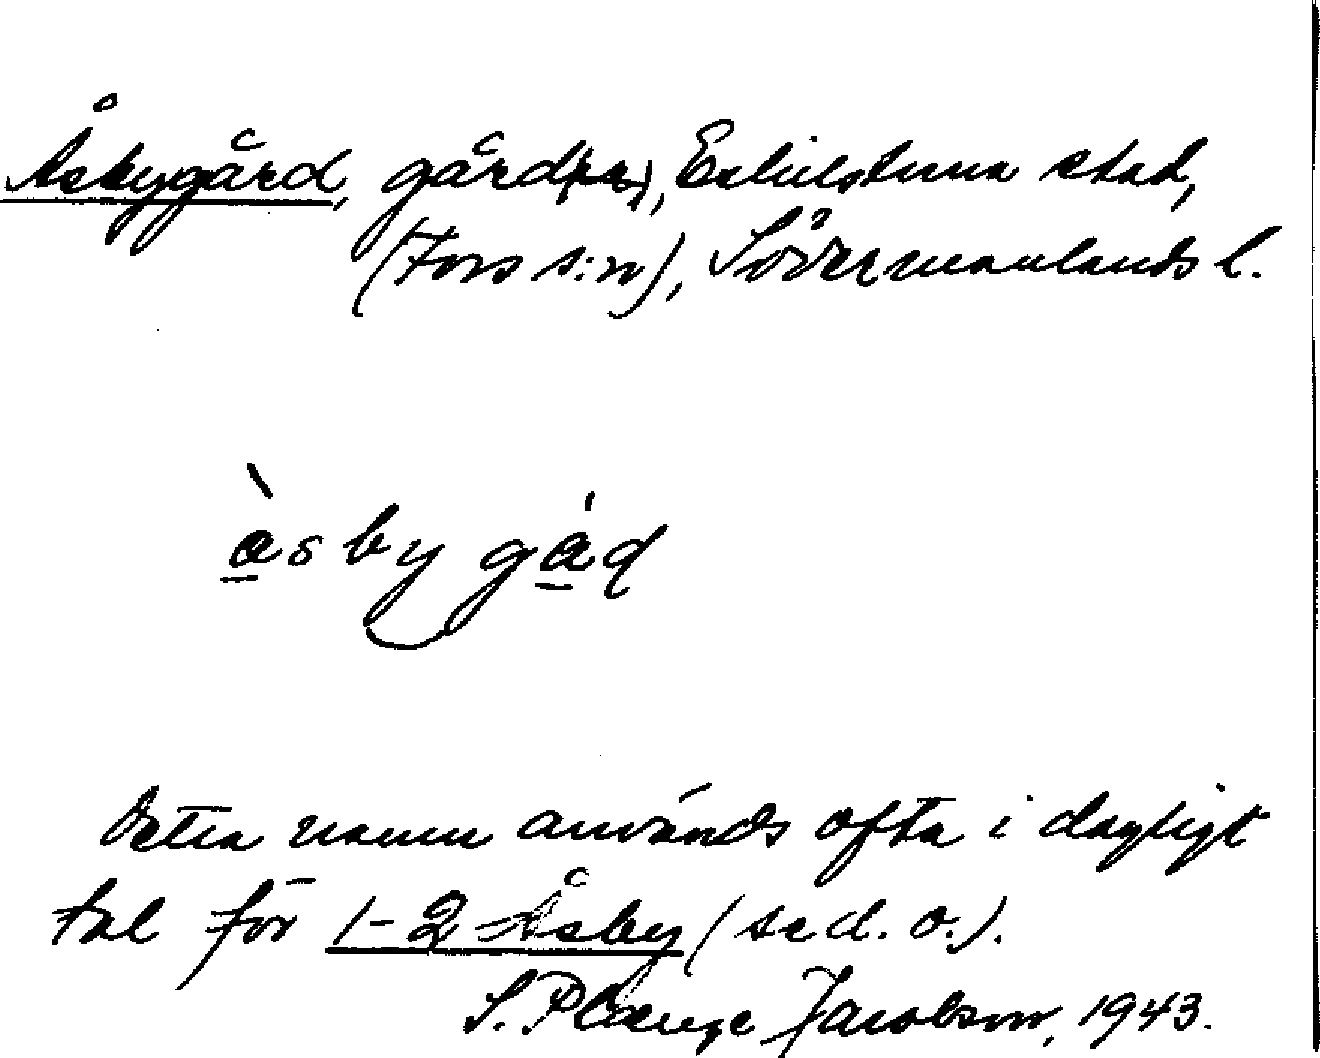 Åsbygård, gård(ar), Eskilstuna stad,
(Fors s:n), Södermanlands l.
àsby gåd
Detta namn används ofta i dagligt
tal för 1-2 Åsby (se d. o.).
S. Plænge Jacobson, 1943.